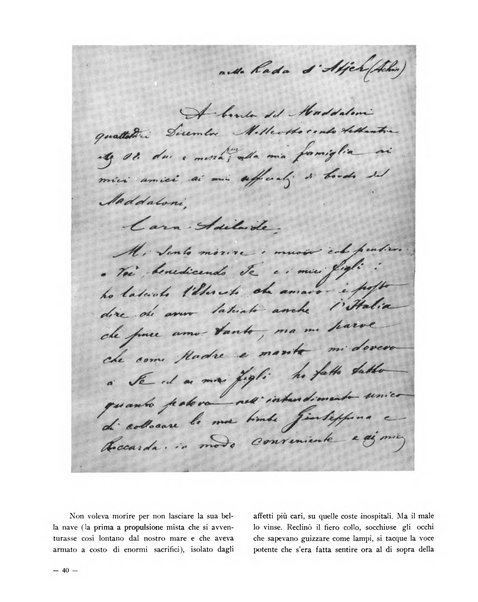 nella Rada d'Atjeh (Achin)
A bordo del Maddaloni
quattordici Dicembre Milleottocento settantatre
ore due e mezza, alla mia famiglia ai
miei amici ai miei ufficiali di bordo del
Maddaloni,
Cara Adelaide,
Mi sento morire e muoio col pensiero
a Voi benedicendo Te e i miei figli:
ho lasciato l'Esercito che amavo e posso
dire di aver lasciato anche l'Italia
che pure amo tanto, ma mi parve
che come Padre e marito mi dovevo
a Te ed ai miei figli ho fatto tutto
quanto poteva nell'intendimento unico
di collocare le mie bimbe Giuseppina e
Riccarda in modo conveniente e ai miei
Non voleva morire per non lasciare la sua bel-
la nave (la prima a propulsione mista che si avven-
turasse così lontano dal nostro mare e che aveva
armato a costo di enormi sacrifici), isolato dagli
affetti più cari, su quelle coste inospitali. Ma il male
lo vinse. Reclinò il fiero collo, socchiuse gli occhi
che sapevano guizzare come lampi, si tacque la voce
potente che s'era fatta sentire ora al di sopra della
— 40 —